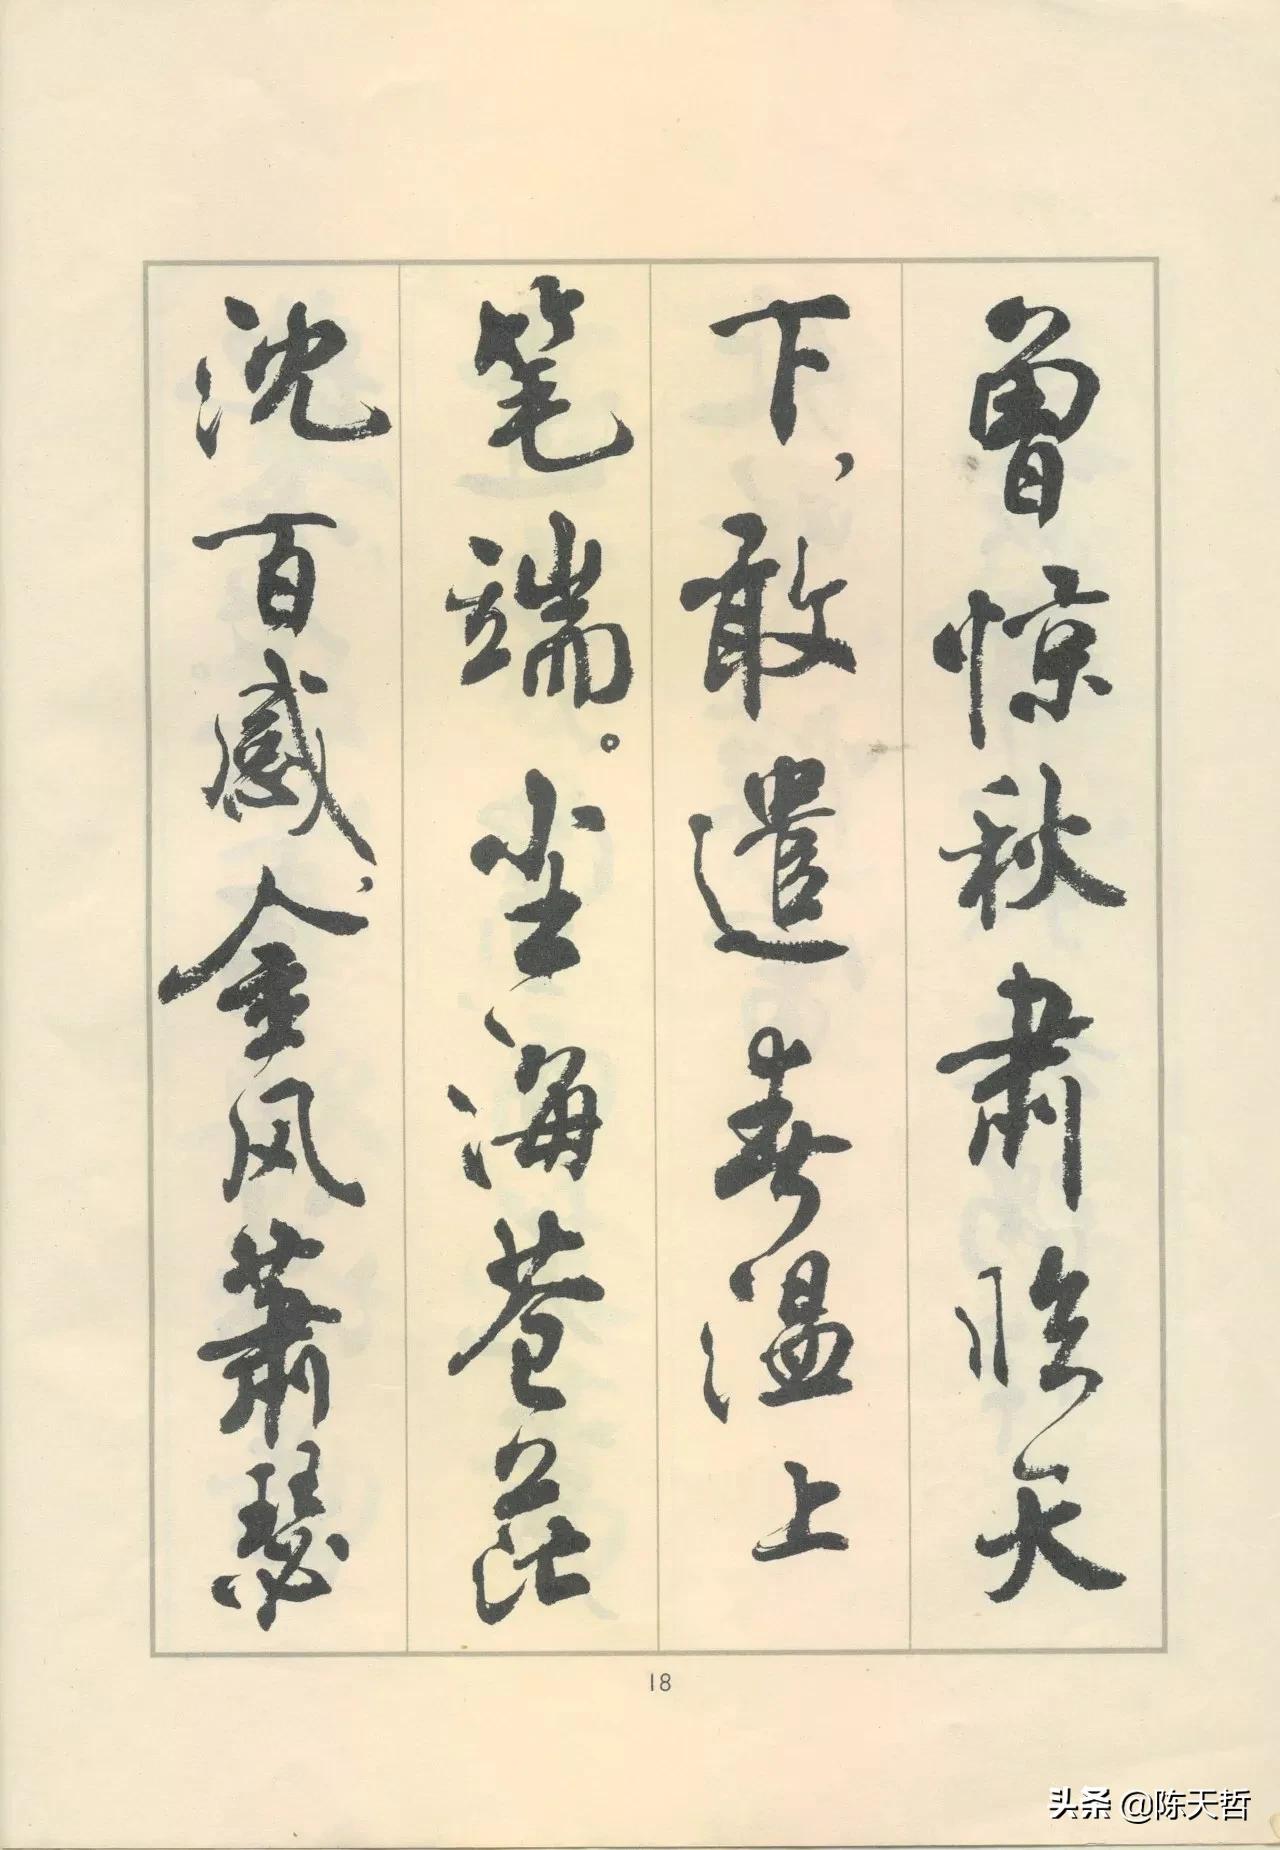 曾惊秋肃临天
下，敢遣春温上
笔端。尘海苍茫
沈百感，金风萧瑟
18
头条 @陈天哲